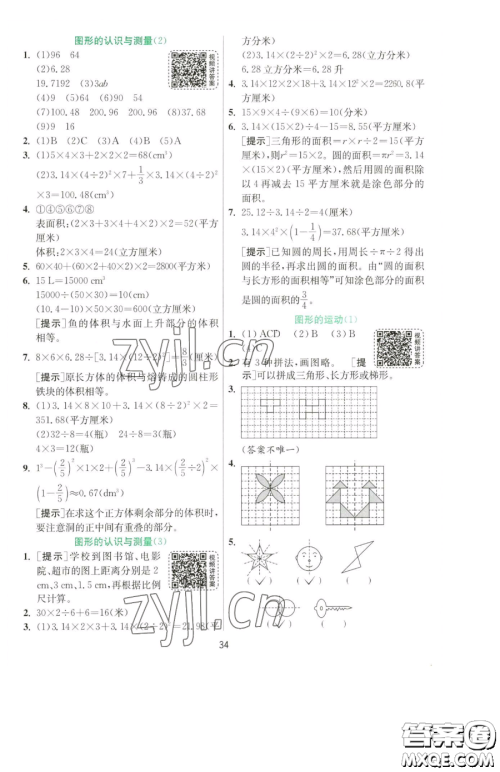 图形的认识与测量(2)
1. (1)96 64
(2)6.28
19.7192 (3)3ab
(4)9 (5)64 (6)90 54
(7)100.48 200.96 200.96 (8)6
(9)9 16
2. (1)B (2)C (3)A (4)B (5)A
3. (1)5×4×3+2×2×2=68(cm³)
(2)3.14×(4÷2)²×7+1/3×3.14×(4÷2)²
×3=100.48(cm³)
4. ①④⑤⑥⑦⑧
表面积:(2×3+3×4+4×2)×2=52(平方
厘米)
体积:2×3×4=24(立方厘米)
5. 60×40+(60×2+40×2)×2=2800(平方米)
6. 15 L=15000 cm³
15000÷(50×30)=10(cm)
(10.4-10)×50×30=600(cm³)
[提示]鱼的体积与水面上升部分的体积
相等。
7. 8×6×6.28÷[3.14×(12÷2)²]=8/3(厘米)
[提示]原长方体的体积与熔铸成的圆柱形
铁块的体积相等。
8. (1)3.14×8×10+3.14×(8÷2)²×2=
351.68(平方厘米)
(2)32÷8=4(瓶) 24÷8=3(瓶)
4×3=12(瓶)
9. 1³-(2/5)²×1×2+(2/5)³-3.14×(2/5÷2)²×
(1-2/5)≈0.67(dm³)
[提示]在求这个正方体剩余部分的体积时,
要注意洞的正中间有重叠的部分。
图形的认识与测量(3)
1. [提示]学校到图书馆、电影
院、超市的图上距离分别是2
cm,3 cm,1.5 cm,再根据比例
尺计算。
2. 30×2÷6+6=16(米)
3. (1)3.14×2×3+3.14×(2÷2)²=21.98(平
方分米)
(2)3.14×(2÷2)²×2=6.28(立方分米)
6.28立方分米=6.28升
4. 3.14×12×2×18+3.14×12²×2=2260.8(平
方厘米)
5. 15×9×4÷(9×6)=10(分米)
6. 3.14×(15×2)÷4-15=8.55(平方厘米)
[提示]三角形的面积=r×r÷2=15(平方
厘米),则r²=15×2。圆的面积=πr²=3.14
×(15×2)(平方厘米),然后用圆的面积除
以4再减去15平方厘米就是涂色部分的
面积。
7. 25.12÷3.14÷2=4(厘米)
3.14×4²×(1-1/4)=37.68(平方厘米)
[提示]已知圆的周长,用周长÷π÷2得出
圆的半径,再求出圆的面积。由“圆的面积
与长方形的面积相等”可知涂色部分的面积
是圆的面积的3/4。
图形的运动(1)
1. (1)ACD (2)B (3)B
2.
示]可以拼成三角形、长方形或梯形。
3.
(答案不唯一)
4.
5.
(✓) ( ) ( )
( ) (✓)
34
视频讲答案
视频讲答案
视频讲答案
zyjl.cn
zyjl.cn
答案圈
MXQE.COM